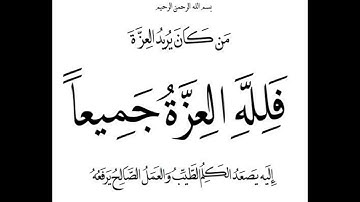 بسم الله الرحمن الرحيم
مَن كَانَ يُرِيدُ العِزَّةَ
فَلِلَّهِ العِزَّةُ جَمِيعاً
إِلَيهِ يَصعَدُ الكَلِمُ الطَّيِّبُ وَالعَمَلُ الصَّالِحُ يَرفَعُهُ